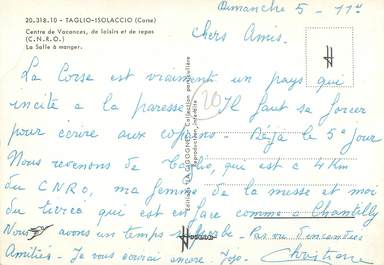 20.318.10 - TAGLIO-ISOLACCIO (Corse)
Centre de Vacances, de loisirs et de repos
(C.N.R.O.)
La Salle à manger.
Dimanche 5 - 11h
Chers Amis.
La Corse est vraiment un pays qui
incite a la paresse. Il faut se forcer
pour écrire aux copains. Déjà le 5e jour
Nous revenons de qui est a 4 Km
du CNRO, ma femme de la messe et moi
du tiercé qui est en face comme a Chantilly
Nous avons un temps superbe. Pas vu d'incendies
Amitiés. Je vous écrirai encore. Jojo. Christiane
Editions "LA CIGOGNE" - Collection particulière
Reproduction interdite
20
H